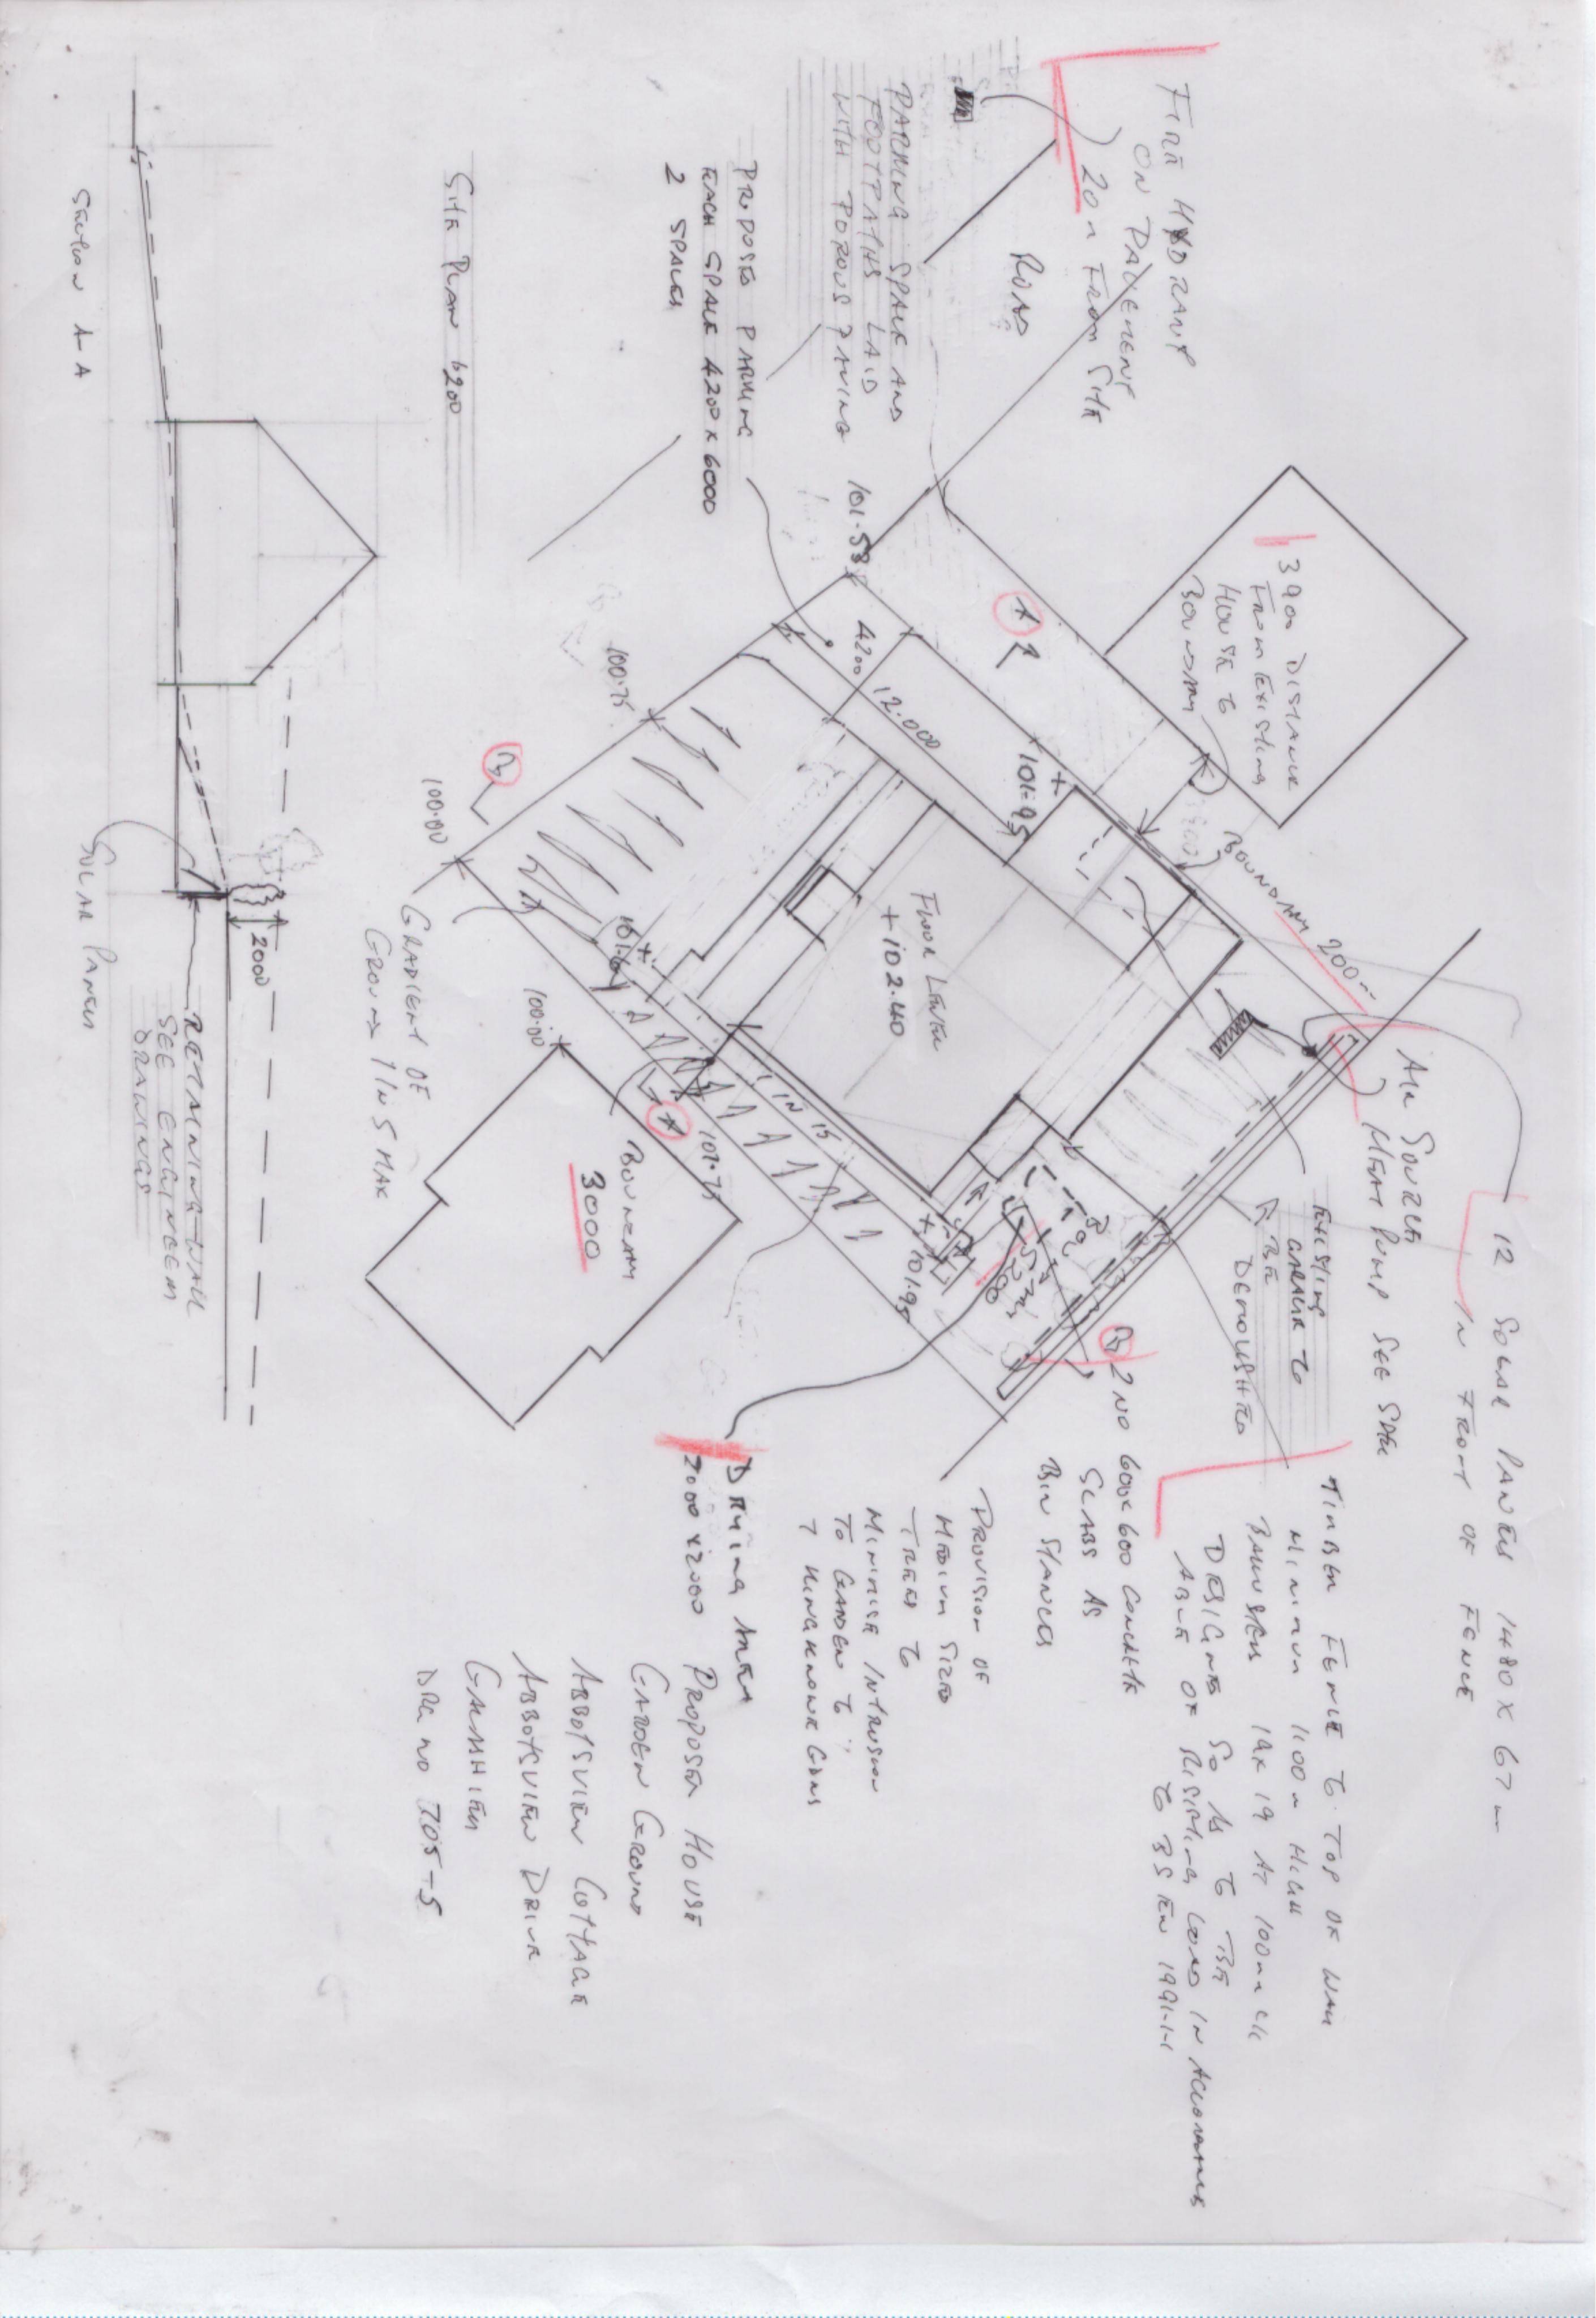 FIRE HYDRANT
ON PAVEMENT
20m FROM SITE
ROAD
PARKING SPACE AND
FOOTPATHS LAID
WITH POROUS PAVING
PROPOSED PARKING
EACH SPACE 4200 x 6000
2 SPACES
SITE PLAN 1:200
SECTION A-A
390m DISTANCE
FROM EXISTING
HOUSE TO
BOUNDARY
BOUNDARY 200m
101.58
4200
12.000
101.95
100.75
100.00
FLOOR LEVEL
+102.40
101.61
1 IN 15
101.75
101.95
5200
100.00
GRADIENT OF
GROUND 1 IN 5 MAX
BOUNDARY
3000
A
B
A
B
2000
SOLAR PANELS
RETAINING WALL
SEE ENGINEERS
DRAWINGS
12 SOLAR PANELS 1480 x 67
IN FRONT OF FENCE
AIR SOURCE
HEAT PUMP SEE SPEC
EXISTING
GARAGE TO
BE
DEMOLISHED
TIMBER FENCE TO TOP OF WALL
MINIMUM 1100m HIGH
BALUSTERS 19 x 19 AT 100mm c/c
DESIGNED SO AS TO BE
ABLE OF RESISTING LOAD IN ACCORDANCE
TO BS EN 1991-1-1
2 NO 600 x 600 CONCRETE
SLABS AS
BIN STANCES
PROVISION OF
MEDIUM SIZED
TREES TO
MINIMISE INTRUSION
TO GARDEN TO
7 KINGKNOWE GDNS
DRYING AREA
2000 x 2000
PROPOSED HOUSE
GARDEN GROUND
ABBOTSVIEW COTTAGE
ABBOTSVIEW DRIVE
GALASHIELS
DRG NO 705-5